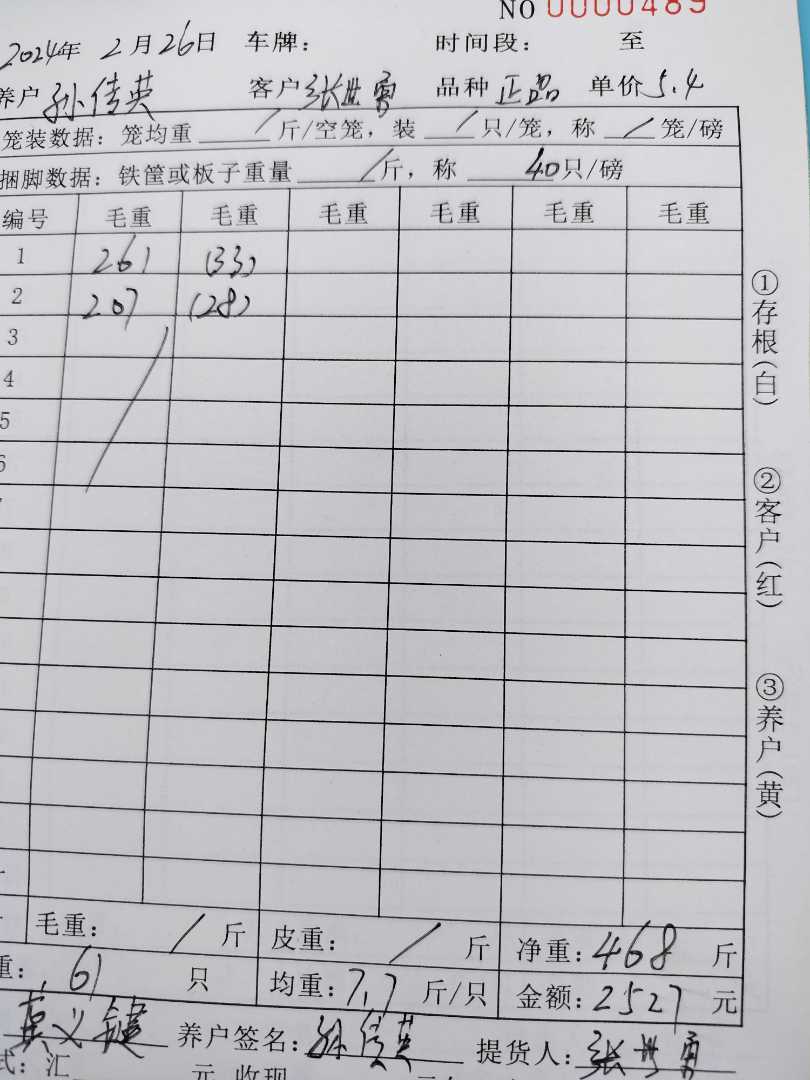 NO 0000489
2024年 2月26日 车牌： 时间段： 至
养户 孙倩英 客户 张世勇 品种 正品 单价 5.4
笼装数据：笼均重 / 斤/空笼，装 / 只/笼，称 / 笼/磅
捆脚数据：铁筐或板子重量 / 斤，称 40只/磅
编号 毛重 毛重 毛重 毛重 毛重 毛重
1 261 (33)
2 207 (28)
3
4
5
6
①存根(白)
②客户(红)
③养户(黄)
毛重： / 斤 皮重： / 斤 净重：468 斤
重：61 只 均重：7.7 斤/只 金额：2527 元
养户签名：孙倩英 提货人：张世勇
式：汇 元 收现